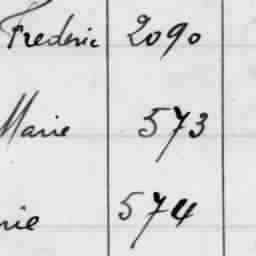 Frederic 2090
Marie 573
rie 574